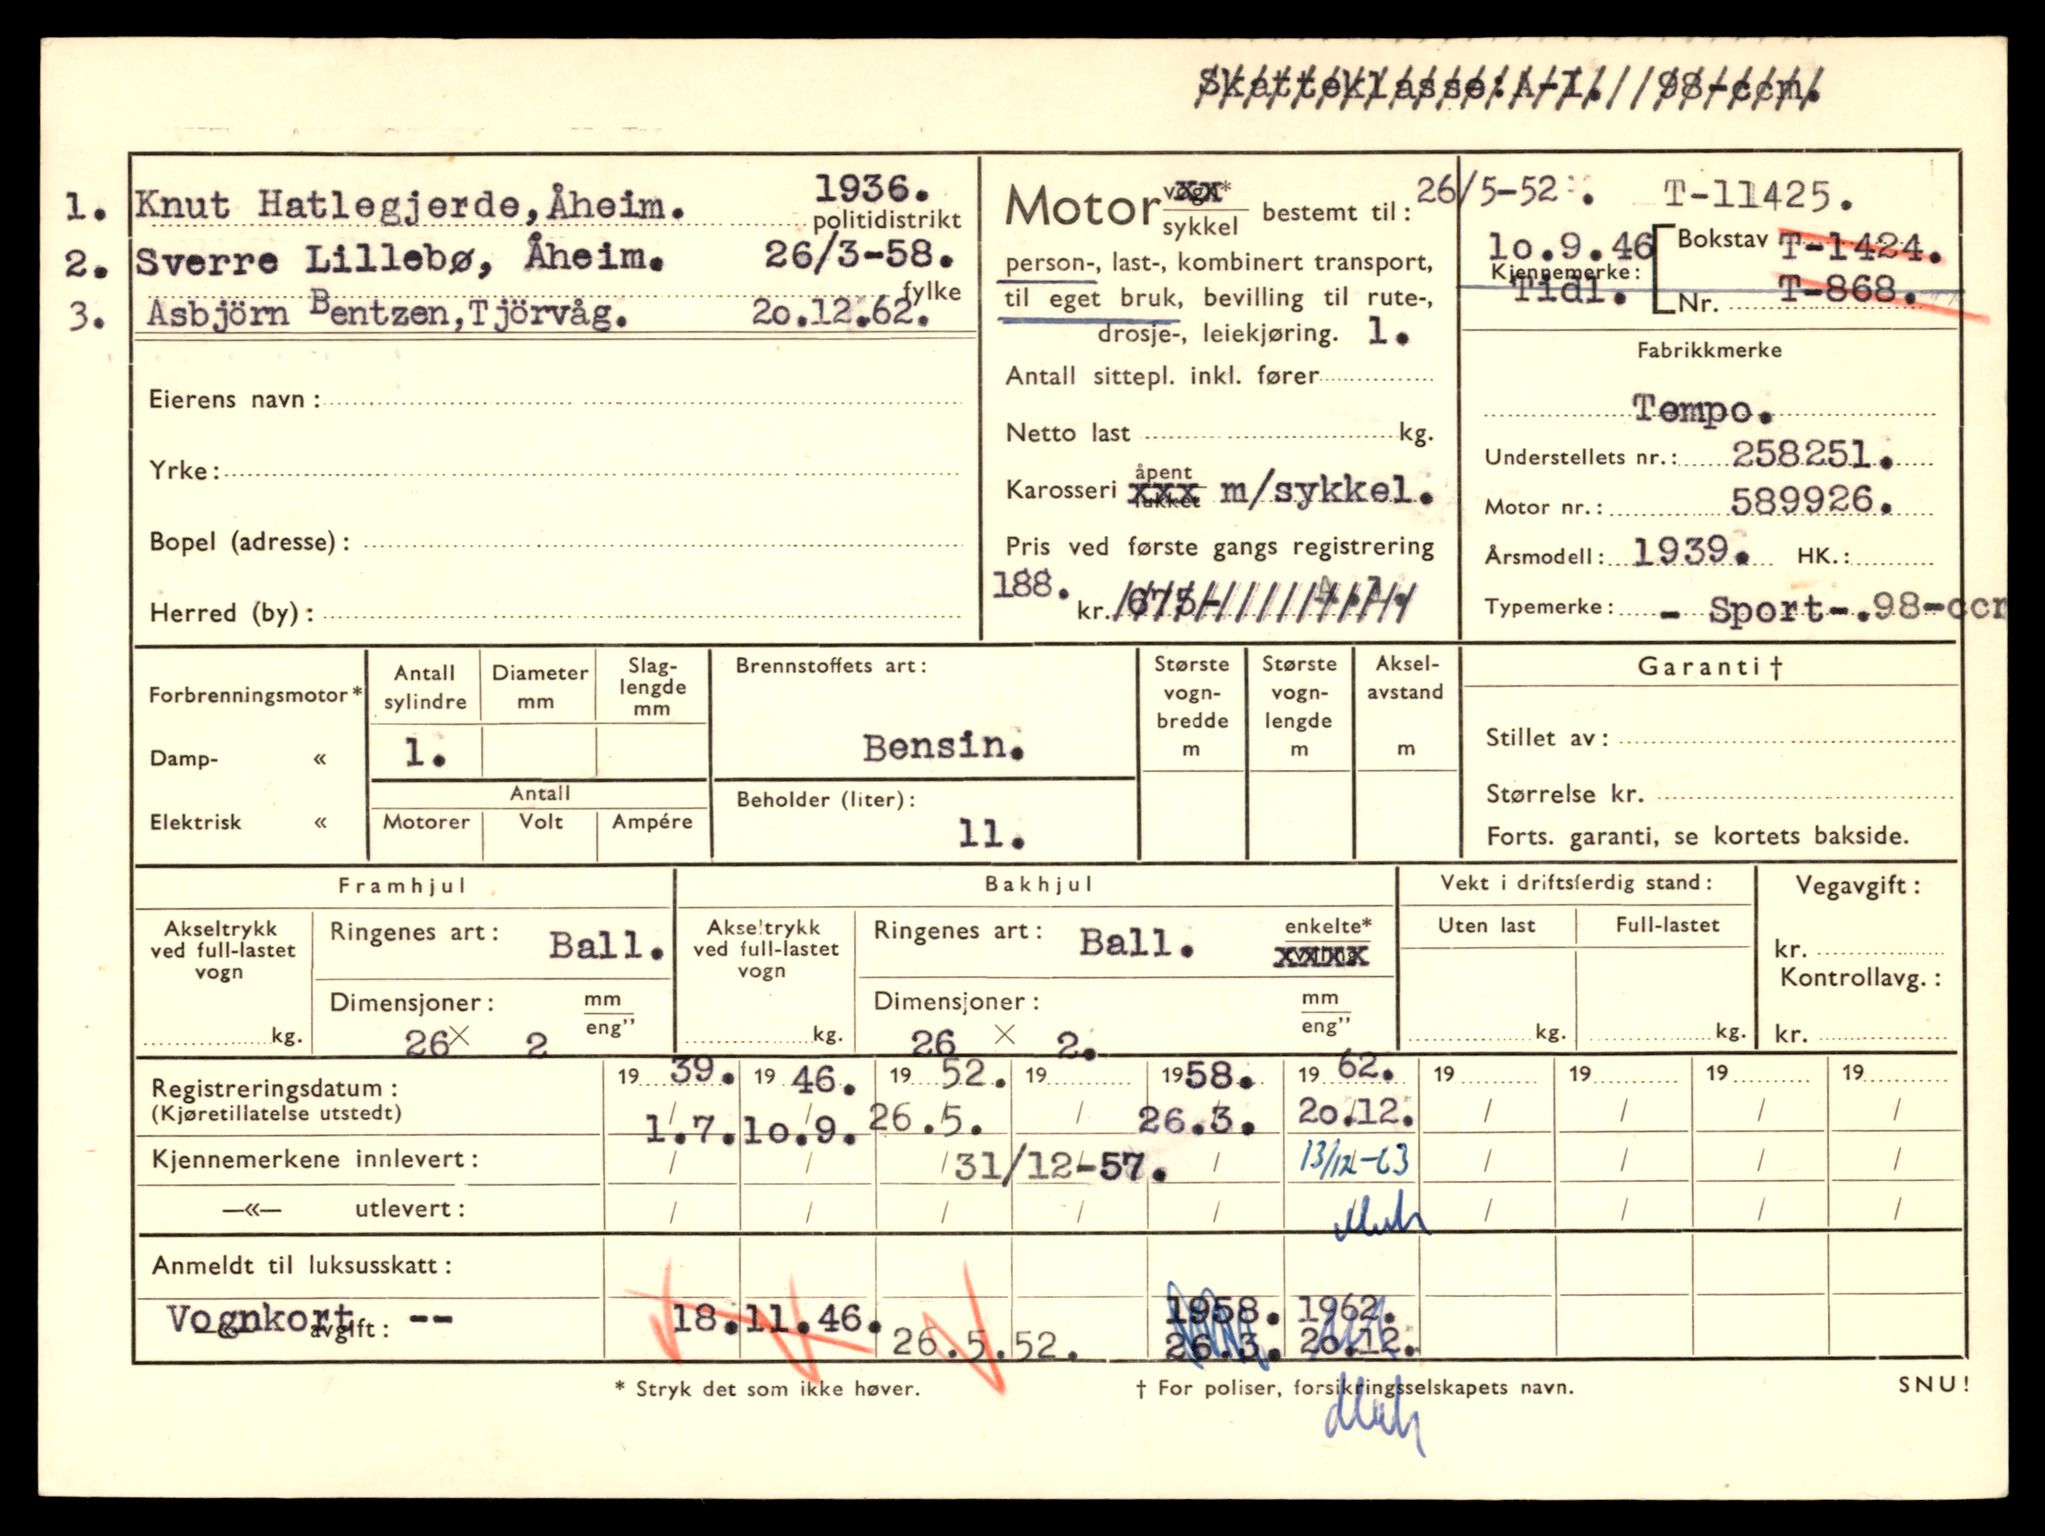 Skatteklasse: A-I. 98-ccm.
1. Knut Hatlegjerde, Åheim. 1936.
politidistrikt
2. Sverre Lillebø, Åheim. 26/3-58.
fylke
3. Asbjörn Bentzen, Tjörvåg. 20.12.62.
Eierens navn :
Yrke :
Bopel (adresse) :
Herred (by) :
Motor vogn* xx
sykkel bestemt til :
person-, last-, kombinert transport,
til eget bruk, bevilling til rute-,
drosje-, leiekjøring. 1.
Antall sittepl. inkl. fører
Netto last kg.
Karosseri åpent
xxx lukket m/sykkel.
Pris ved første gangs registrering
188. kr. 675,-
26/5-52. T-11425.
10.9.46 Bokstav T-1424.
Kjennemerke :
Tidl. Nr. T-868.
Fabrikkmerke
Tempo.
Understellets nr. : 258251.
Motor nr. : 589926.
Årsmodell : 1939. HK. :
Typemerke : - Sport-.98-ccm
Forbrenningsmotor*
Damp- «
Elektrisk «
Antall sylindre
1.
Diameter mm
Slag-
lengde
mm
Antall
Motorer Volt Ampére
Brennstoffets art :
Bensin.
Beholder (liter) :
11.
Største
vogn-
bredde
m
Største
vogn-
lengde
m
Aksel-
avstand
m
Garanti †
Stillet av :
Størrelse kr.
Forts. garanti, se kortets bakside.
Framhjul
Akseltrykk
ved full-lastet
vogn
kg.
Ringenes art : Ball.
Dimensjoner : mm
eng”
26 × 2
Bakhjul
Akseltrykk
ved full-lastet
vogn
kg.
Ringenes art : Ball. enkelte*
xxxx
Dimensjoner : mm
eng”
26 × 2.
Vekt i driftsferdig stand :
Uten last Full-lastet
kg. kg.
Vegavgift :
kr.
Kontrollavg. :
kr.
Registreringsdatum : 19 39. 19 46. 19 52. 19 19 58. 19 62. 19 19 19 19
(Kjøretillatelse utstedt) 1.7. 10.9. 26.5. / 26.3. 20.12. / / / /
Kjennemerkene innlevert : / / / 31/12-57. / 13/12-63 / / / /
—«— utlevert : / / / / / / / / /
Anmeldt til luksusskatt :
Vognkort --
—«— avgift : 18.11.46. 26.5.52. 1958. 1962.
26.3. 20.12.
* Stryk det som ikke høver.
† For poliser, forsikringsselskapets navn.
SNU!